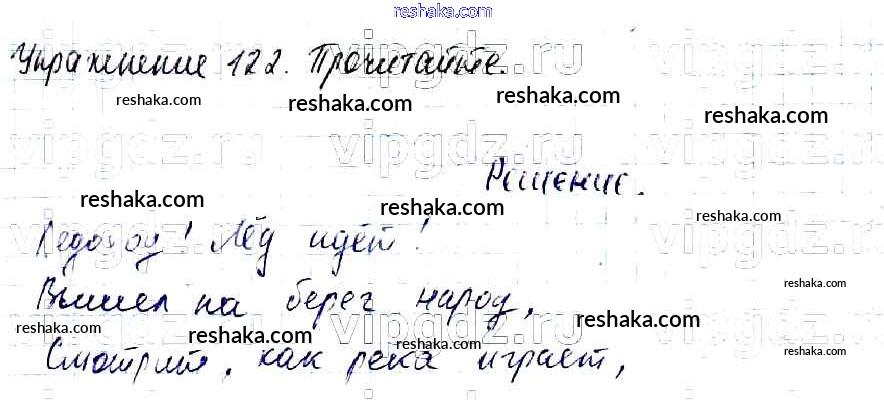 reshaka.com
Упражнение 122. Прочитайте.
reshaka.com reshaka.com reshaka.com
vipgdz.ru vipgdz.ru
Решение.
reshaka.com reshaka.com reshaka.com
Ледоход! Лёд идёт!
reshaka.com
Вышел на берег народ,
reshaka.com reshaka.com reshaka.com reshaka.com
Смотрит, как река играет,